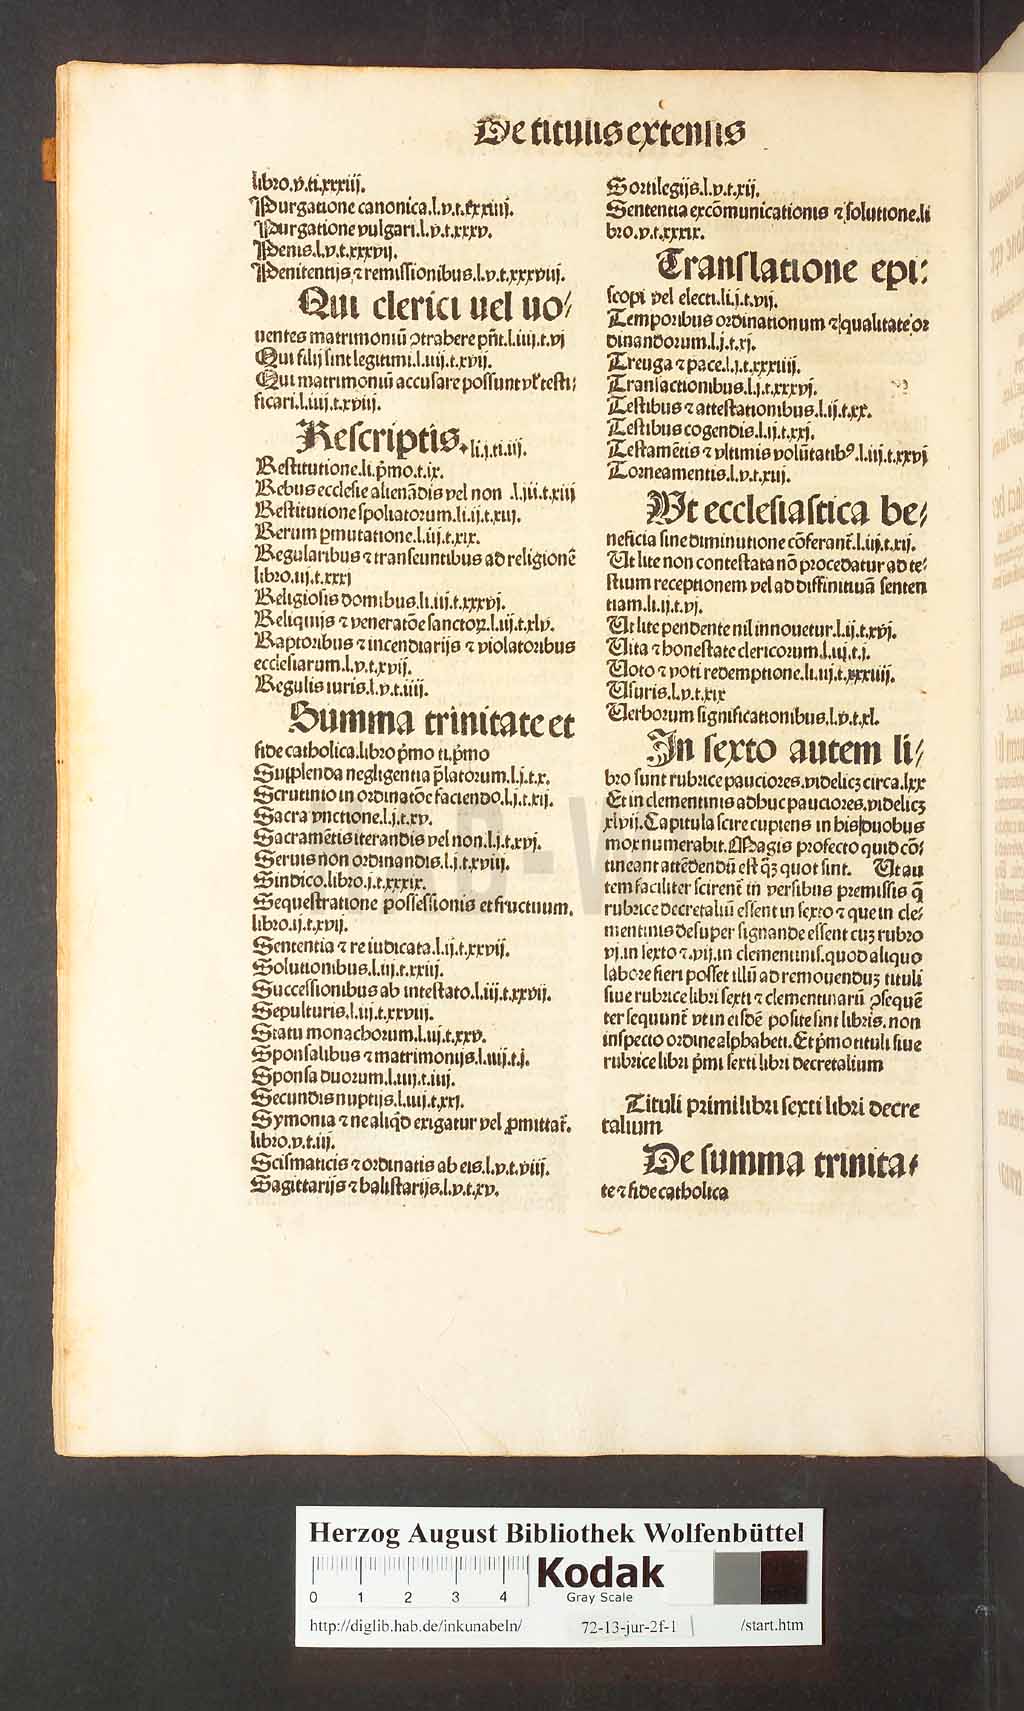 De titulis extensis
libro.v.ti.xxxiij.
Purgatione canonica.l.v.t.xxxiiij.
Purgatione vulgari.l.v.t.xxxv.
Penis.l.v.t.xxxvij.
Penitentijs ⁊ remissionibus.l.v.t.xxxviij.
Qui clerici vel vo/
uentes matrimoniū ꝯtrahere pn̄t.l.iiij.t.vj
Qui filij sint legitimi.l.iiij.t.xvij.
Qui matrimoniū accusare possunt vl' testi/
ficari.l.iiij.t.xviij.
Rescriptis. li.j.ti.iij.
Restitutione.li.p̄mo.t.ix.
Rebus ecclesie alienādis vel non .l.iii.t.xiij
Restitutione spoliatorum.li.ij.t.xiij.
Rerum ꝑmutatione.l.iij.t.xix.
Regularibus ⁊ transeuntibus ad religionē
libro.iij.t.xxxj
Religiosis domibus.li.iij.t.xxxvj.
Reliquijs ⁊ veneratōe sanctoꝝ.l.iij.t.xlv.
Raptoribus ⁊ incendiarijs ⁊ violatoribus
ecclesiarum.l.v.t.xvij.
Regulis iuris.l.v.t.iiij.
Summa trinitate et
fide catholica.libro p̄mo ti.p̄mo
Supplenda negligentia p̄latorum.l.j.t.x.
Scrutinio in ordinatōe faciendo.l.j.t.xij.
Sacra vnctione.l.j.t.xv.
Sacramētis iterandis vel non.l.j.t.xvj.
Seruis non ordinandis.l.j.t.xviij.
Sindico.libro.j.t.xxxix.
Sequestratione possessionis et fructuum.
libro.ij.t.xvij.
Sententia ⁊ re iudicata.l.ij.t.xxvij.
Solutionibus.l.iij.t.xxiij.
Successionibus ab intestato.l.iij.t.xxvij.
Sepulturis.l.iij.t.xxviij.
Statu monachorum.l.iij.t.xxv.
Sponsalibus ⁊ matrimonijs.l.iiij.t.j.
Sponsa duorum.l.iiij.t.iiij.
Secundis nuptijs.l.iiij.t.xxj.
Symonia ⁊ ne aliq̄d exigatur vel ꝑmittat̄.
libro.v.t.iij.
Scismaticis ⁊ ordinatis ab eis.l.v.t.viij.
Sagittarijs ⁊ balistarijs.l.v.t.xv.
Sortilegijs.l.v.t.xij.
Sententia excōmunicationis ⁊ solutione.li
bro.v.t.xxxix.
Translatione epi:
scopi vel electi.li.j.t.vij.
Temporibus ordinationum ⁊ qualitate or
dinandorum.l.j.t.xj.
Treuga ⁊ pace.l.j.t.xxxiiij.
Transactionibus.l.j.t.xxxvj.
Testibus ⁊ attestationibus.l.ij.t.xx.
Testibus cogendis.l.ij.t.xxj.
Testamētis ⁊ vltimis volūtatibꝰ.l.iij.t.xxvj
Torneamentis.l.v.t.xiij.
Vt ecclesiastica be/
neficia sine diminutione cōferant̄.l.iij.t.xij.
Vt lite non contestata nō procedatur ad te/
stium receptionem vel ad diffinitiuā senten
tiam.li.ij.t.vj.
Vt lite pendente nil innouetur.l.ij.t.xvj.
Vita ⁊ honestate clericorum.l.iij.t.j.
Voto ⁊ voti redemptione.li.iij.t.xxxiiij.
Vsuris.l.v.t.xix
Verborum significationibus.l.v.t.xl.
In sexto autem li/
bro sunt rubrice pauciores.videlicꝫ circa.lxx
Et in clementinis adhuc pauciores.videlicꝫ
xlvij.Capitula scire cupiens in his duobus
mox numerabit.Magis profecto quid cō/
tineant attēdendū est q̄ꝫ quot sint. Vt au
tem faciliter scirent̄ in versibus premissis q̄
rubrice decretaliū essent in sexto ⁊ que in cle/
mentinis desuper signande essent cuꝫ rubro
vj.in sexto ⁊.vij.in clementinis.quod aliquo
labore fieri posset illū ad remouenduꝫ tituli
siue rubrice libri sexti ⁊ clementinarū ꝯsequē
ter sequunt̄ vt in eisdē posite sint libris.non
inspecto ordine alphabeti.Et p̄mo tituli siue
rubrice libri p̄mi sexti libri decretalium
Tituli primi libri sexti libri decre
talium
De summa trinita/
te ⁊ fide catholica
HAB-W
Herzog August Bibliothek Wolfenbüttel
0 1 2 3 4
Kodak
Gray Scale
http://diglib.hab.de/inkunabeln/ 72-13-jur-2f-1 /start.htm